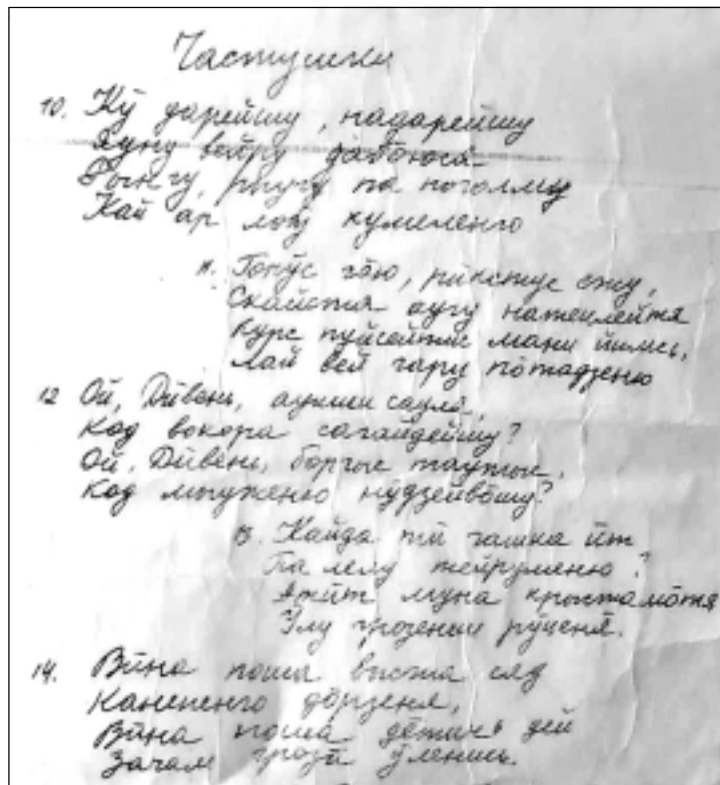 Частушки
10. Кӯ дарейшу, надарейшу
Яуну вейру дабоюся
Гонгу, рпугу па ноголму
Кай ар лоӯ кумеленго
11. Гонӯс гōю, рикстус ежу,
Скайстя аугу натеклейтя
Курс пуйсейтис мани йимсь,
Лай вей гару пōтадзеню
12 Ой, Дӣвень, аукши саулā,
Код вокора сагайдейшу?
Ой, Дӣвень, боргыс таутыс,
Код мыуженю нӯдзейвōшу?
13. Кайда тӣ гашка ӣт
Па лелу тейруменю?
Атӣт муна крыстамōтя
Улу грозении рӯценя.
14. Вӣна поша выста сяд
Каненего дōрзеня,
Вӣна поша дēтись дей
Зачам грозӣ ӯленись.